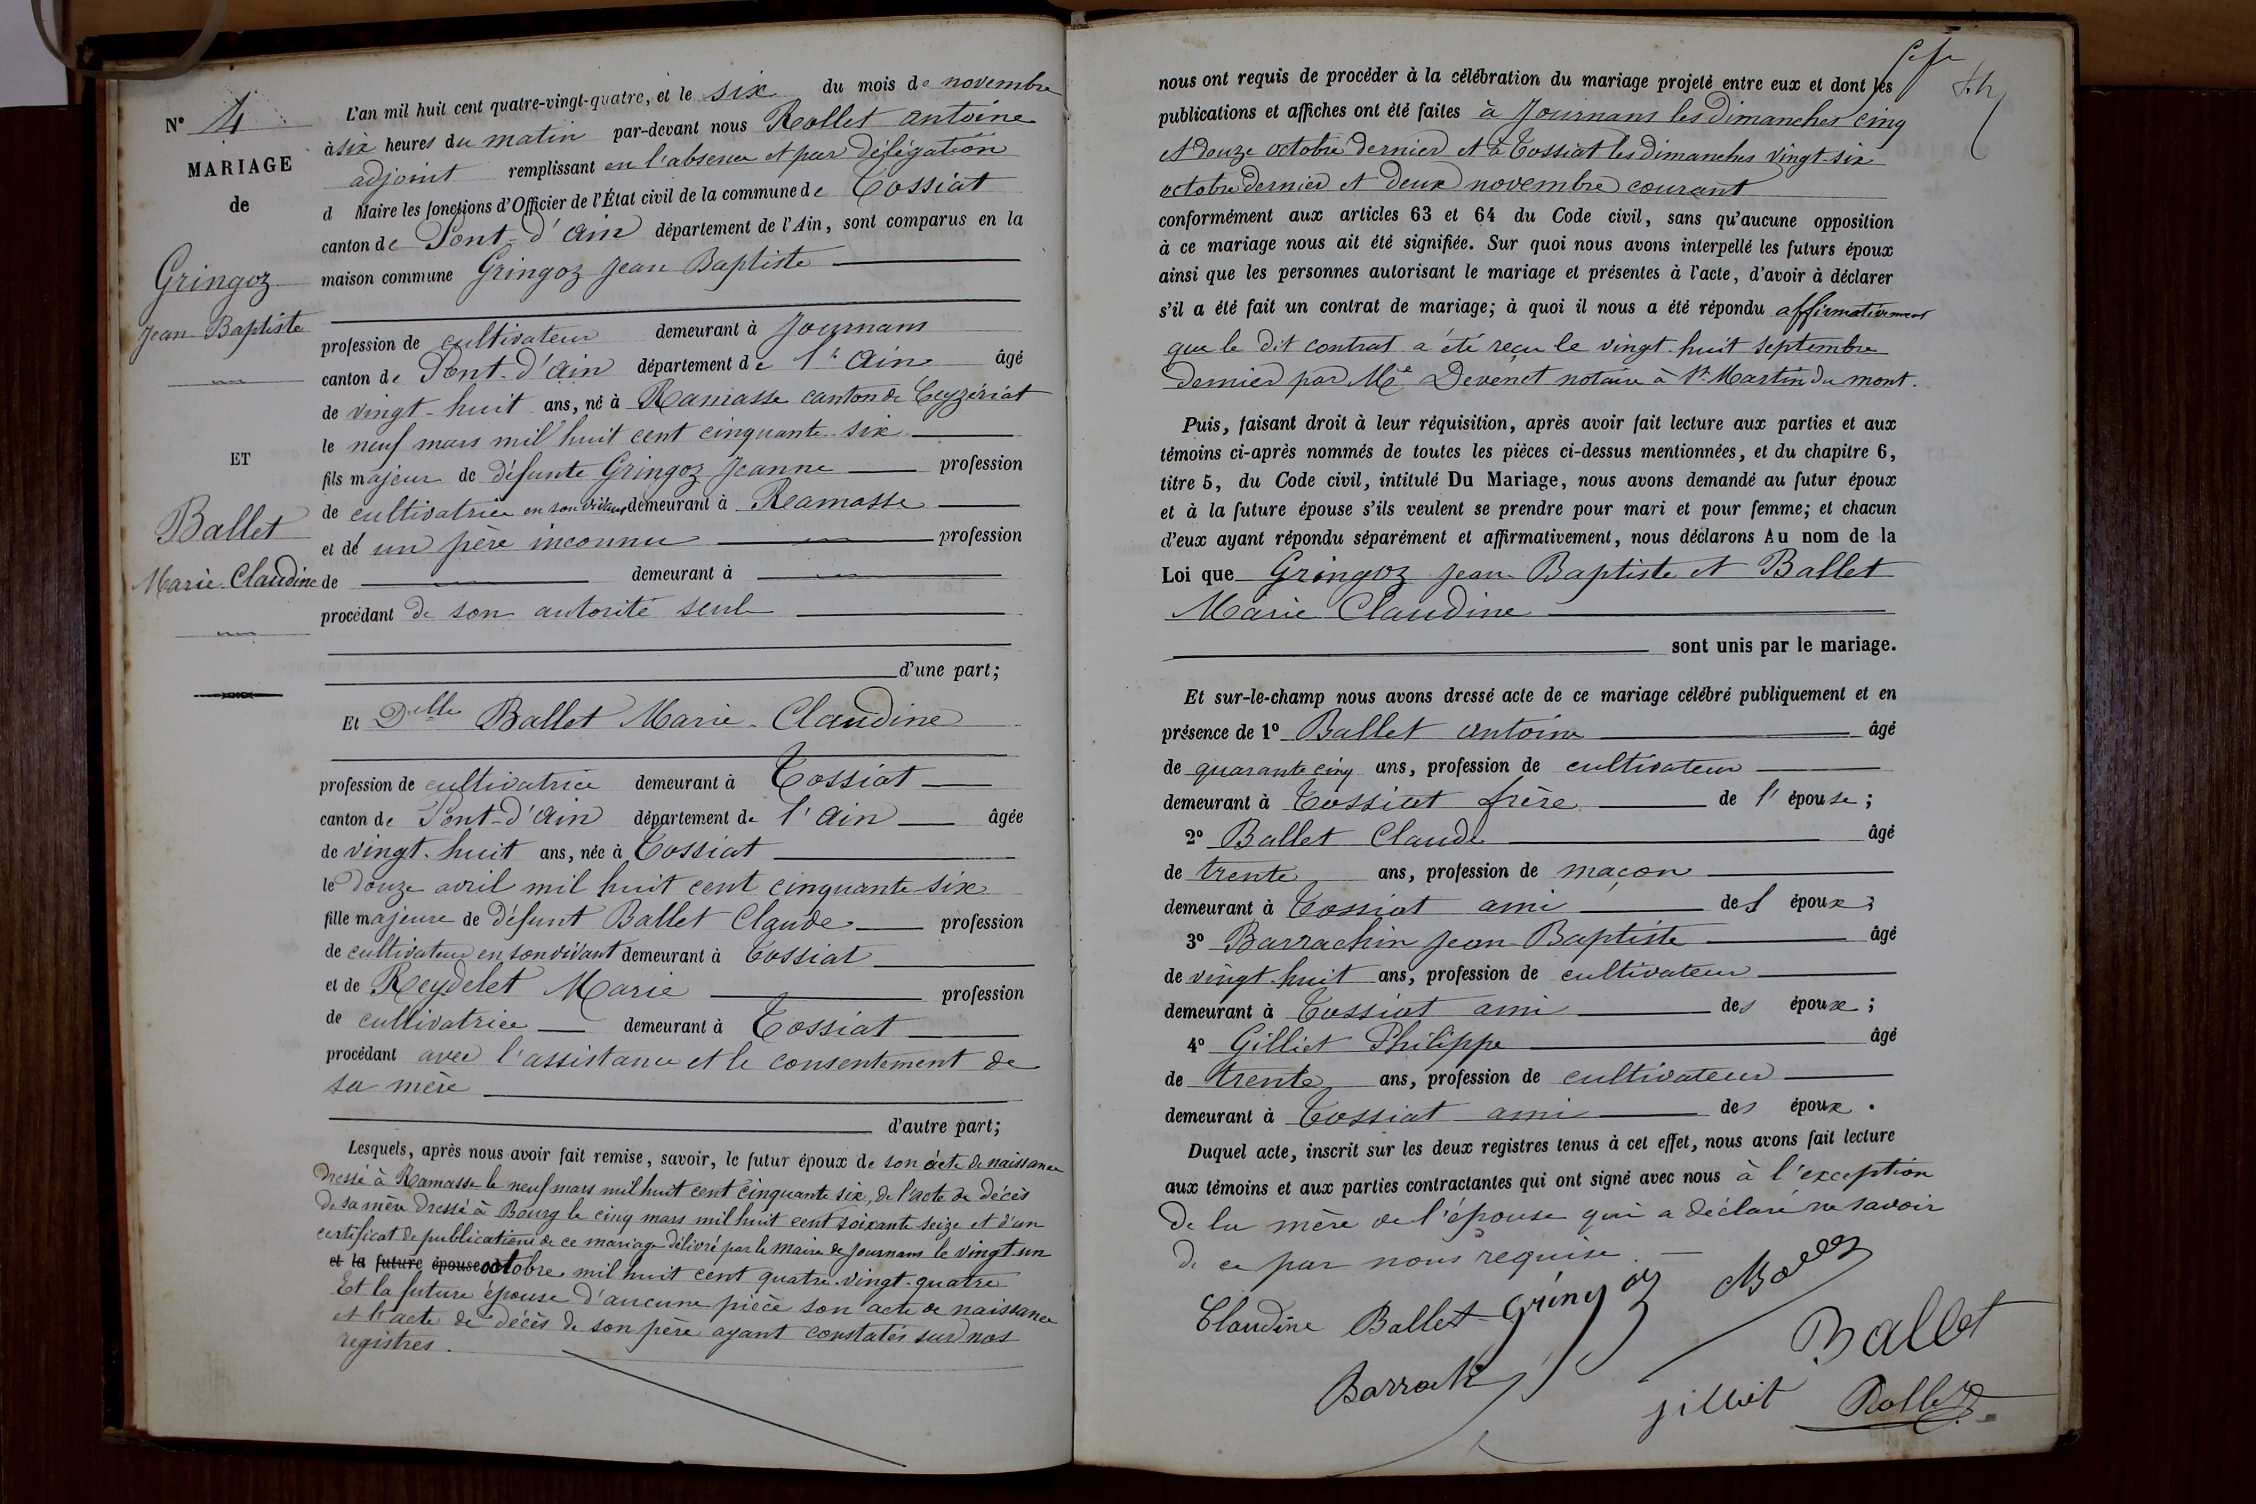 N° 4
MARIAGE
de
Gringoz
Jean Baptiste
ET
Ballet
Marie Claudine
L'an mil huit cent quatre-vingt-quatre, et le six du mois de novembre
à six heures du matin par-devant nous Rollet antoine
adjoint remplissant en l'absence et par délégation
d Maire les fonctions d'Officier de l'État civil de la commune de Tossiat
canton de Pont-d'ain département de l'Ain, sont comparus en la
maison commune Gringoz Jean Baptiste
profession de cultivateur demeurant à Journans
canton de Pont-d'ain département de l'ain âgé
de vingt-huit ans, né à Ramasse canton de Ceyzériat
le neuf mars mil huit cent cinquante-six
fils majeur de défunte Gringoz Jeanne profession
de cultivatrice en son vivant demeurant à Ramasse
et de un père inconnu profession
de demeurant à
procédant de son autorité seule
d'une part;
Et Delle Ballet Marie-Claudine
profession de cultivatrice demeurant à Tossiat
canton de Pont-d'ain département de l'ain âgée
de vingt-huit ans, née à Tossiat
le douze avril mil huit cent cinquante six
fille majeure de défunt Ballet Claude profession
de cultivateur en son vivant demeurant à Tossiat
et de Reydelet Marie profession
de cultivatrice demeurant à Tossiat
procédant avec l'assistance et le consentement de
sa mère
d'autre part;
Lesquels, après nous avoir fait remise, savoir, le futur époux de son acte de naissance
dressé à Ramasse le neuf mars mil huit cent cinquante six, de l'acte de décès
de sa mère dressé à Bourg le cinq mars mil huit cent soixante seize et d'un
certificat de publications de ce mariage délivré par le maire de Journans le vingt-un
et la future épouse octobre mil huit cent quatre-vingt-quatre
Et la future épouse d'aucune pièce son acte de naissance
et l'acte de décès de son père ayant constatés sur nos
registres.
nous ont requis de procéder à la célébration du mariage projeté entre eux et dont les
publications et affiches ont été faites à Journans les dimanches cinq
et douze octobre dernier et à Tossiat les dimanches vingt-six
octobre dernier et deux novembre courant
conformément aux articles 63 et 64 du Code civil, sans qu'aucune opposition
à ce mariage nous ait été signifiée. Sur quoi nous avons interpellé les futurs époux
ainsi que les personnes autorisant le mariage et présentes à l'acte, d'avoir à déclarer
s'il a été fait un contrat de mariage; à quoi il nous a été répondu affirmativement
que le dit contrat a été reçu le vingt-huit septembre
dernier par Me Devenet notaire à St Martin du mont.
Puis, faisant droit à leur réquisition, après avoir fait lecture aux parties et aux
témoins ci-après nommés de toutes les pièces ci-dessus mentionnées, et du chapitre 6,
titre 5, du Code civil, intitulé Du Mariage, nous avons demandé au futur époux
et à la future épouse s'ils veulent se prendre pour mari et pour femme; et chacun
d'eux ayant répondu séparément et affirmativement, nous déclarons Au nom de la
Loi que Gringoz Jean Baptiste et Ballet
Marie Claudine
sont unis par le mariage.
Et sur-le-champ nous avons dressé acte de ce mariage célébré publiquement et en
présence de 1° Ballet antoine âgé
de quarante cinq ans, profession de cultivateur
demeurant à Tossiat frère de l'épouse;
2° Ballet Claude âgé
de trente ans, profession de maçon
demeurant à Tossiat ami des époux;
3° Barrachin Jean Baptiste âgé
de vingt huit ans, profession de cultivateur
demeurant à Tossiat ami des époux;
4° Gilliet Philippe âgé
de trente ans, profession de cultivateur
demeurant à Tossiat ami des époux.
Duquel acte, inscrit sur les deux registres tenus à cet effet, nous avons fait lecture
aux témoins et aux parties contractantes qui ont signé avec nous à l'exception
de la mère de l'épouse qui a déclaré ne savoir
de ce par nous requise.
Claudine Ballet Gringoz
Ballet
Barrachi
gilliet Rollet